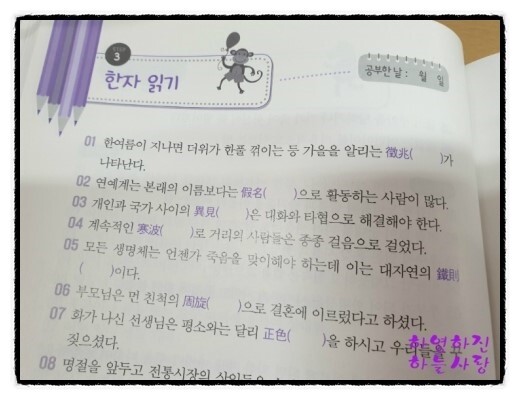 STEP 3
한자 읽기
공부한 날 : 월 일
01 한여름이 지나면 더위가 한풀 꺾이는 등 가을을 알리는 徵兆( )가
나타난다.
02 연예계는 본래의 이름보다는 假名( )으로 활동하는 사람이 많다.
03 개인과 국가 사이의 異見( )은 대화와 타협으로 해결해야 한다.
04 계속적인 寒波( )로 거리의 사람들은 종종 걸음으로 걸었다.
05 모든 생명체는 언젠가 죽음을 맞이해야 하는데 이는 대자연의 鐵則
( )이다.
06 부모님은 먼 친척의 周旋( )으로 결혼에 이르렀다고 하셨다.
07 화가 나신 선생님은 평소와는 달리 正色( )을 하시고 우리들을
짖으셨다.
08 명절을 앞두고 전통시장의 상인들은
하영하진
하튼사랑